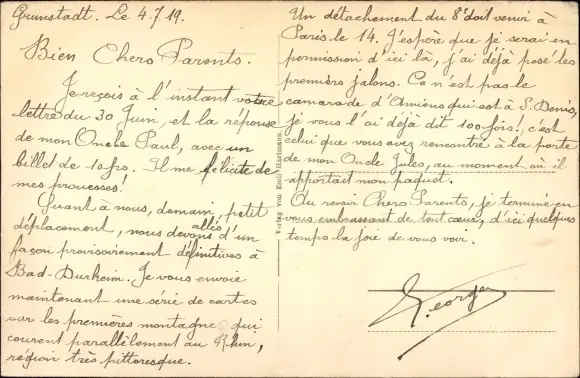 Grunstadt. Le 4.7.19.
Bien Chers Parents.
Je reçois à l'instant votre
lettre du 30 Juin, et la réponse
de mon Oncle Paul, avec un
billet de 10frs. Il me félicite de
mes prouesses!
Quant à nous, demain, petit
déplacement, nous devons allés d'un
façon provisoirement définitives à
Bad-Durheim. Je vous envoie
maintenant une série de cartes
sur les premières montagne qui
courent parallèlement au Rhin,
région très pittoresque.
Un détachement du 8e doit venir à
Paris le 14. J'espère que je serai en
permission d'ici là, j'ai déjà posé les
premiers jalons. Ce n'est pas le
camarade d'Amiens qui est à S. Denis,
je vous l'ai déjà dit 100 fois!, c'est
celui que vous avez rencontré à la porte
de mon Oncle Jules, au moment où il
apportait mon paquet.
Au revoir Chers Parents, je termine en
vous embrassant de tout cœur, d'ici quelques
temps la joie de vous voir.
Georges
Verlag von Emil Hartmann